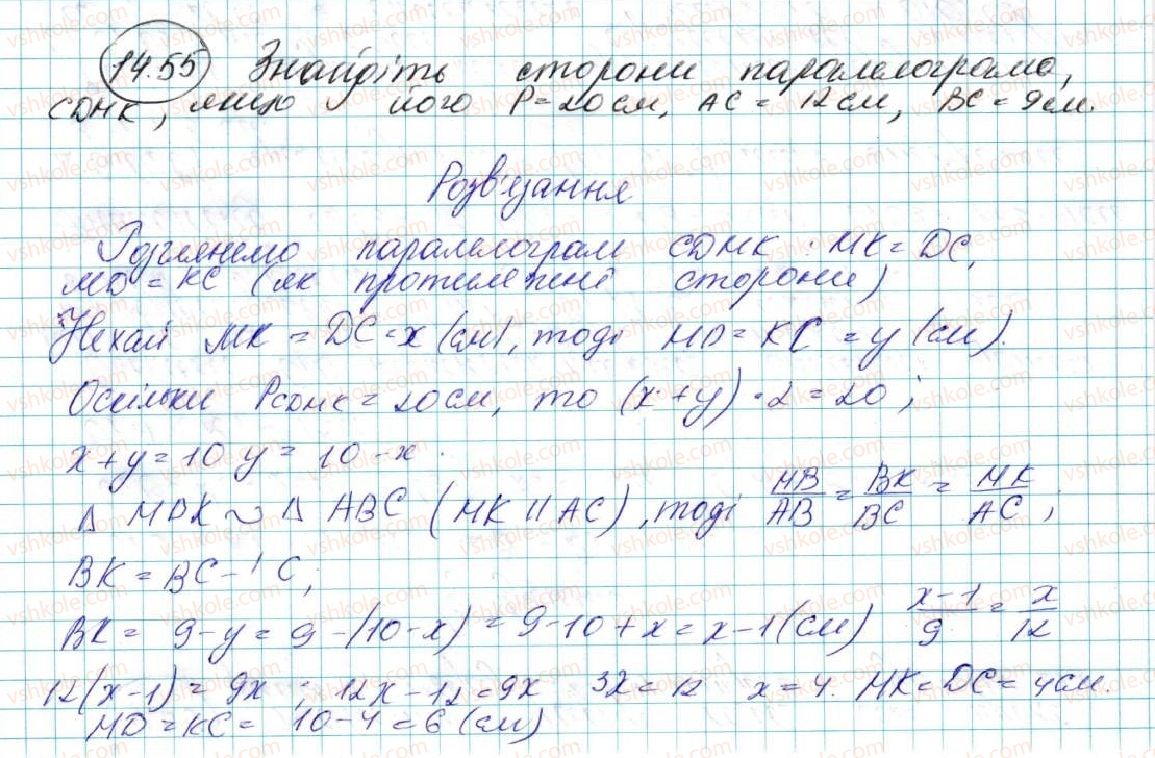 14.55 Знайдіть сторони паралелограма,
CDMK, якщо його P = 20 см, AC = 12 см, BC = 9 см.
Розв'язання
Розглянемо паралелограм CDMK : MK = DC,
MD = KC (як протилежні сторони)
Нехай MK = DC = x (см), тоді MD = KC = y (см).
Оскільки PCDMK = 20 см, то (x + y) • 2 = 20 ;
x + y = 10 y = 10 - x .
Δ MDK ∾ Δ ABC (MK || AC), тоді MB/AB = BK/BC = MK/AC ;
BK = BC - C ;
BK = 9 - y = 9 - (10 - x) = 9 - 10 + x = x - 1 (см) x - 1/9 = x/12
12(x - 1) = 9x ; 12x - 12 = 9x 32 = 12 x = 4. MK = DC = 4 см.
MD = KC = 10 - 4 = 6 (см)